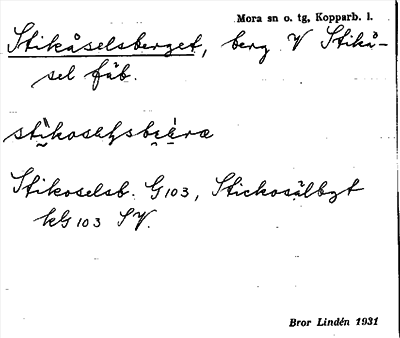 Mora sn o. tg, Kopparb. l.
Stikåselsberget, berg V Stikå-
sel fäb.
Stikoselsb. G 103, Stickosälbgt
kG 103 SV.
Bror Lindén 1931